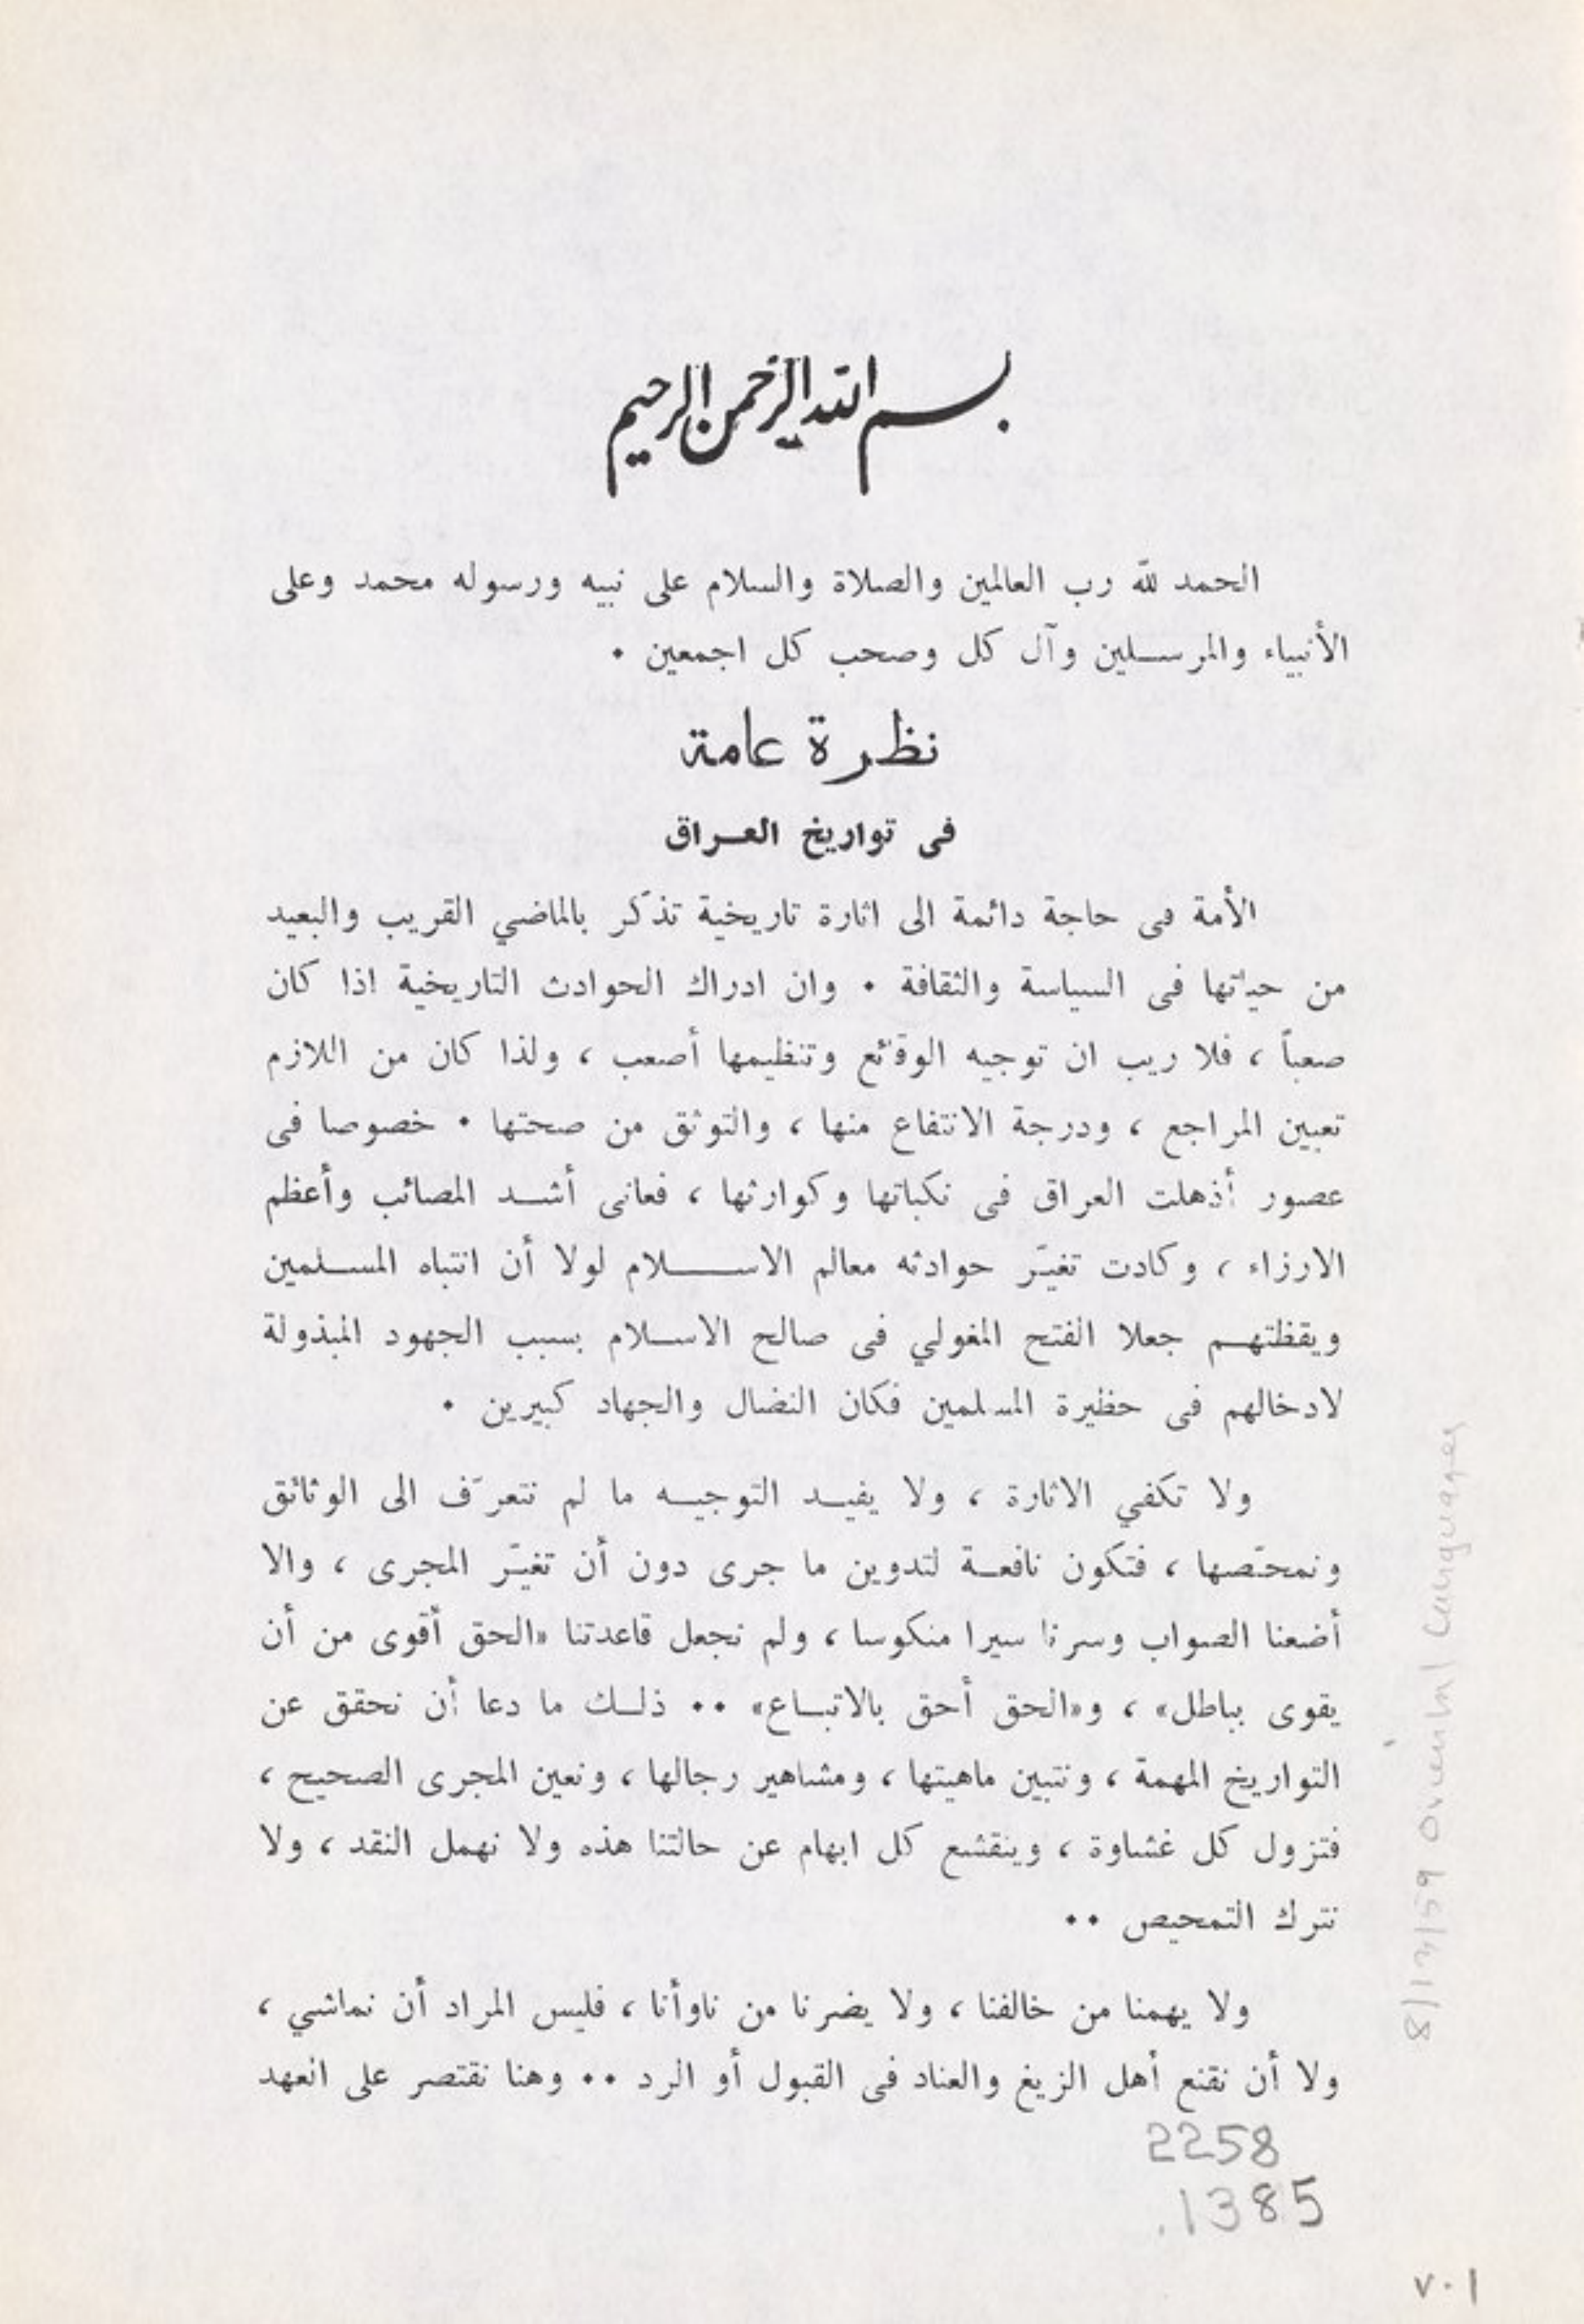 بسم الله الرحمن الرحيم
الحمد لله رب العالمين والصلاة والسلام على نبيه ورسوله محمد وعلى
الأنبياء والمرسلين وآل كل وصحب كل اجمعين ٠
نظرة عامة
فى تواريخ العراق
الأمة فى حاجة دائمة الى اثارة تاريخية تذكّر بالماضي القريب والبعيد
من حياتها فى السياسة والثقافة ٠ وان ادراك الحوادث التاريخية اذا كان
صعباً ، فلا ريب ان توجيه الوقائع وتنظيمها أصعب ، ولذا كان من اللازم
تعيين المراجع ، ودرجة الانتفاع منها ، والتوثق من صحتها ٠ خصوصا فى
عصور أذهلت العراق فى نكباتها وكوارثها ، فعانى أشد المصائب وأعظم
الارزاء ، وكادت تغيّر حوادثه معالم الاسلام لولا أن انتباه المسلمين
ويقظتهم جعلا الفتح المغولي فى صالح الاسلام بسبب الجهود المبذولة
لادخالهم فى حظيرة المسلمين فكان النضال والجهاد كبيرين ٠
ولا تكفي الاثارة ، ولا يفيد التوجيه ما لم نتعرّف الى الوثائق
ونمحّصها ، فتكون نافعة لتدوين ما جرى دون أن تغيّر المجرى ، والا
أضعنا الصواب وسرنا سيرا منكوسا ، ولم نجعل قاعدتنا «الحق أقوى من أن
يقوى بباطل» ، و«الحق أحق بالاتباع» ٠٠ ذلك ما دعا أن نحقق عن
التواريخ المهمة ، ونتبين ماهيتها ، ومشاهير رجالها ، ونعين المجرى الصحيح ،
فتزول كل غشاوة ، وينقشع كل ابهام عن حالتنا هذه ولا نهمل النقد ، ولا
نترك التمحيص ٠٠
ولا يهمنا من خالفنا ، ولا يضرنا من ناوأنا ، فليس المراد أن نماشي ،
ولا أن نقنع أهل الزيغ والعناد فى القبول أو الرد ٠٠ وهنا نقتصر على العهد
2258
.1385
8/13/59 Oriental Languages
٧٠١